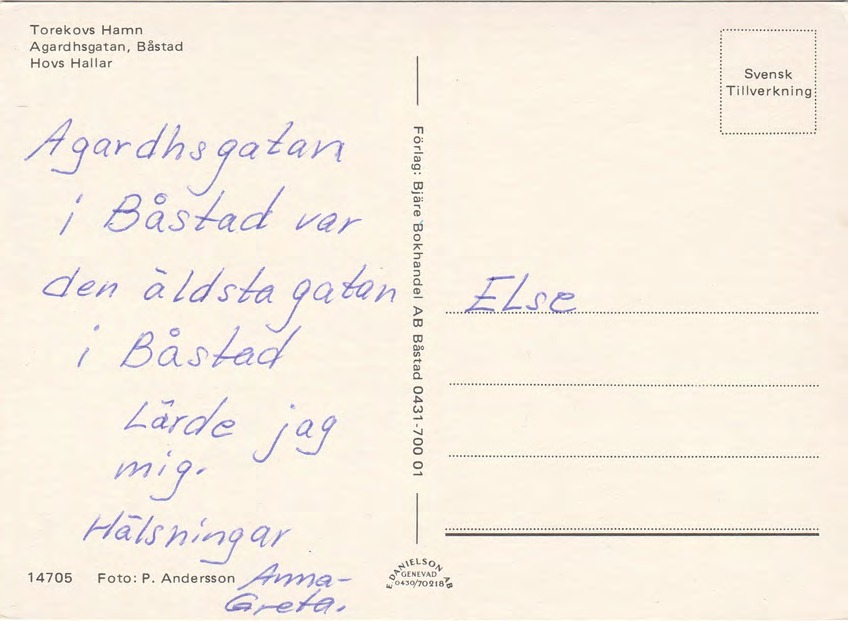 Torekovs Hamn
Agardhsgatan, Båstad
Hovs Hallar
Agardhsgatan
i Båstad var
den äldsta gatan
i Båstad
Lärde jag
mig.
Hälsningar
Anna-
Greta.
14705 Foto: P. Andersson
Förlag: Bjäre Bokhandel AB Båstad 0431-700 01
E. DANIELSON AB
GENEVAD
0430/70218
Svensk
Tillverkning
Else